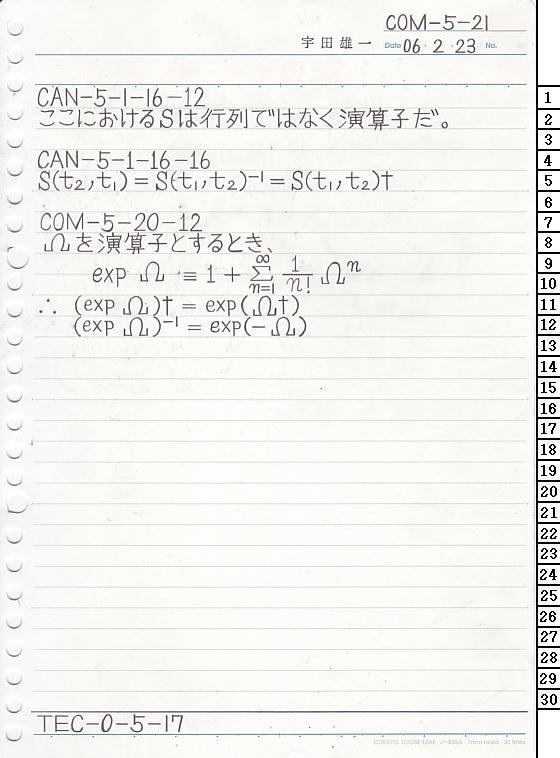 COM-5-21
宇田雄一 Date 06・2・23 No.
CAN-5-1-16-12
ここにおけるSは行列ではなく演算子だ。
CAN-5-1-16-16
S(t₂,t₁) = S(t₁,t₂)⁻¹ = S(t₁,t₂)†
COM-5-20-12
Ωを演算子とするとき、
exp Ω ≡ 1 + ∞∑n=1 1/n! Ωⁿ
∴ (exp Ω)† = exp(Ω†)
(exp Ω)⁻¹ = exp(-Ω)
TEC-0-5-17
KOKUYO LOOSE-LEAF ノ-836A 7mm ruled 31 lines
1
2
3
4
5
6
7
8
9
10
11
12
13
14
15
16
17
18
19
20
21
22
23
24
25
26
27
28
29
30